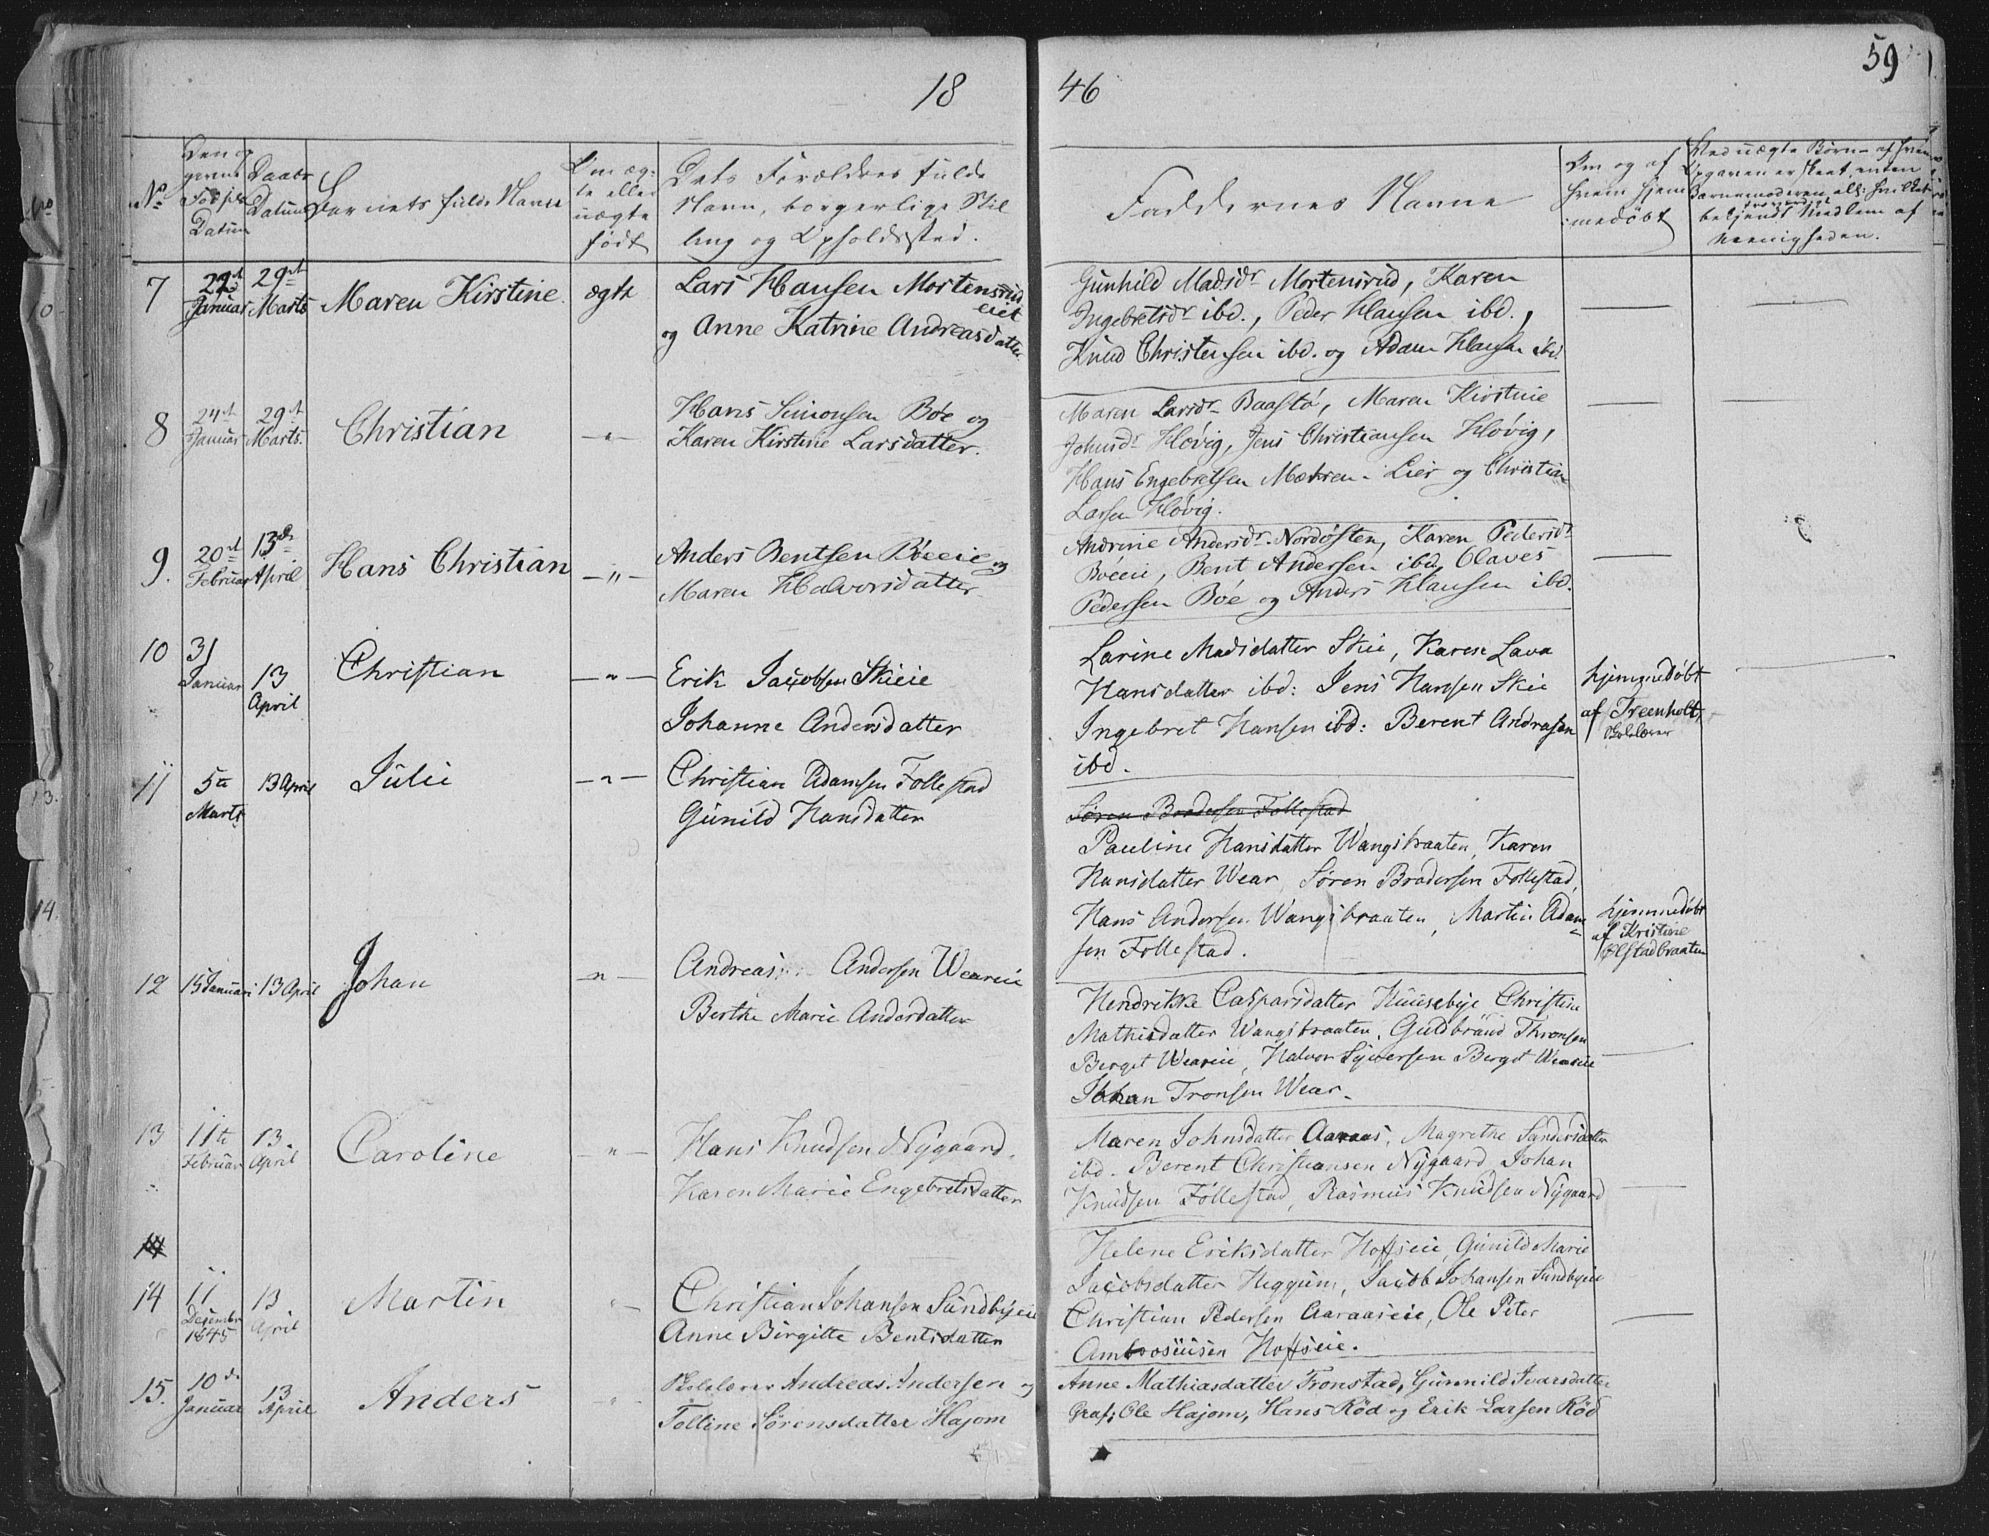 18
46
59
No
Den op
givne
Fødsels
Datum
Daabs
Datum
Barnets fulde Navn
Om æg-
te eller
uægte
født
Dets Forældres fulde
Navn, borgerlige Stil
ling og Opholdssted.
Faddernes Navne
Om og af
hvem hjem
medøbt
Ved uægte Børn
Opgaven er skeet, enten
Barnemoderen
bekjendt Medlem af
Meenigheden.
7
Januar
29de
Marts
Maren Kirstine.
ægte
Lars Hansen Mortensrud
eiet
og Anne Katrine Andreasdatter
Gunhild Madsdr Mortensrud, Karen
Ingebretsdr ibd., Peder Hansen ibd.,
Knud Christensen ibd. og Adam Hansen ibd.
8
24de
Januar
29de
Marts.
Christian
—"—
Hans Simonsen Bøe og
Karen Kirstine Larsdatter.
Maren Larsdr Baastø, Maren Kirstine
Johnsdr Høvig, Jens Christiansen Høvig,
Hans Engebretsen Mæhren - Lier og Christian
Larsen Høvig.
9.
20de
Februar
13de
April
Hans Christian
—"—
Anders Bentsen Bøeeie og
Maren Halvorsdatter
Andrine Andersdr Nordøsten, Karen Pedersdr
Bøeeie, Bent Andersen ibd, Olaves
Pedersen Bøe og Anders Hansen ibd.
10
31
Januar
13
April
Christian
—"—
Erik Jacobsen Skieie
Johanne Andersdatter
Larine Madsdatter Skie, Karen Lava
Hansdatter ibd: Jens Hansen Skie
Ingebret Hansen ibd: Berent Andrasen
ibd.
hjemmedøbt
af Treenholt,
Skolelærer
11
5te
Marts
13 April
Julie
—"—
Christian Adamsen Follestad
Gunild Hansdatter
Søren Bradersen Follestad
Pauline Hansdatter Wangsbraaten, Karen
Hansdatter Wear, Søren Bradersen Follestad,
Hans Andersen Wangsbraaten, Martin Adam
sen Follestad.
hjemmedøbt
af Kristine
Ølstadbraaten
12
15 Januari
13 April
Johan
—"—
Andreas Andersen Weareie
Berthe Marie Andersdatter
Hendrikke Casparsdatter Huusebye Christine
Mathisdatter Wangsbraaten, Guldbrand Thronsen
Berget Weareie, Halvor Syversen Berget Weareie
Johan Tronsen Wear.
13
11te
Februar
13
April
Caroline
—"—
Hans Knudsen Nygaard.
Karen Marie Engebretsdatter
Maren Johnsdatter Aaraas, Magrethe Sandersdatter
ibd. Berent Christiansen Nygaard, Johan
Knudsen Follestad, Rasmus Knudsen Nygaard
14
11
Desember
1845
13
April
Martin
"—
Christian Johansen Sundbyeie
Anne Birgitte Bentsdatter
Helene Eriksdatter Hoffseie, Gunild Marie
Jacobsdatter Heggum, Jacob Johansen Sundbyeie
Christian Pedersen Aaraaseie, Ole Peter
Ambrosiusen Hoffseie.
15.
10de
Januar
13
April
Anders
Skolelærer Andreas Andersen og
Tolline Sørensdatter Hajom
Anne Mathiasdatter Tronstad, Gunnild Ivarsdatter
Graf; Ole Hajom, Hans Rød og Erik Larsen Rød